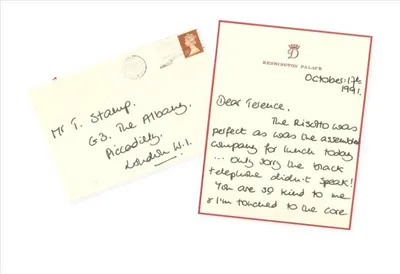 Mr T. Stamp.
G3. The Albany.
Piccadilly.
London W.I.
D
KENSINGTON PALACE
October. 17th
1991.
Dear Terence.
The Risotto was
perfect as was the assembled
company for lunch today
... only sorry the black
telephone didn't speak!
You are so kind to me
& I'm touched to the core